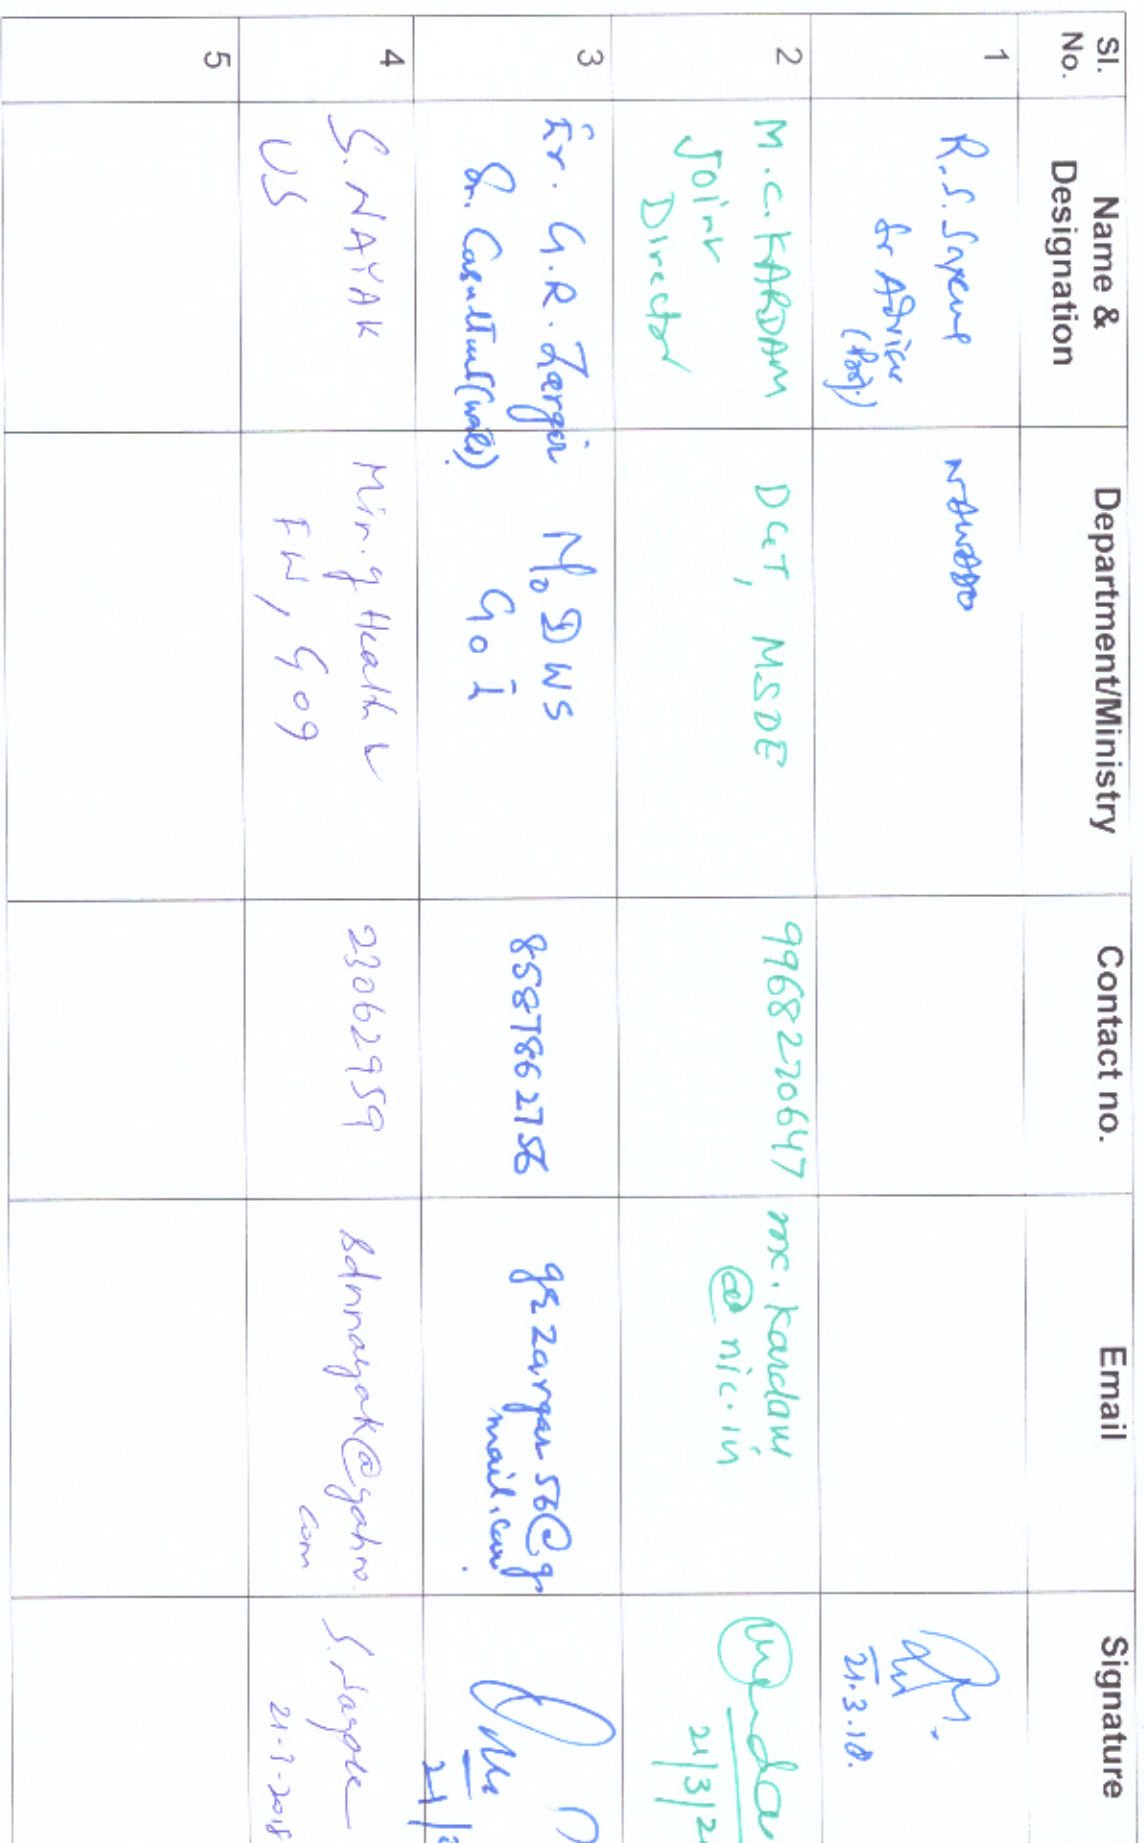 Sl. No.
Name & Designation
Department/Ministry
Contact no.
Email
Signature
1
R.S.
Sr Adviser
21.3.18.
2
M.C. KARDAM
Joint
Director
DGT, MSDE
9968270647
mc.kardam
@nic.in
21/3/2
3
Er. G.R. Zargar
Sr. (Water)
Mo DWS
GoI
8587862756
grzargar56@g
mail.com
21/
4
S. NAYAK
US
Min. of Health &
FW, GOI
23062959
sdnnayak@yahoo.
com
S. Nayak
21-3-2018
5